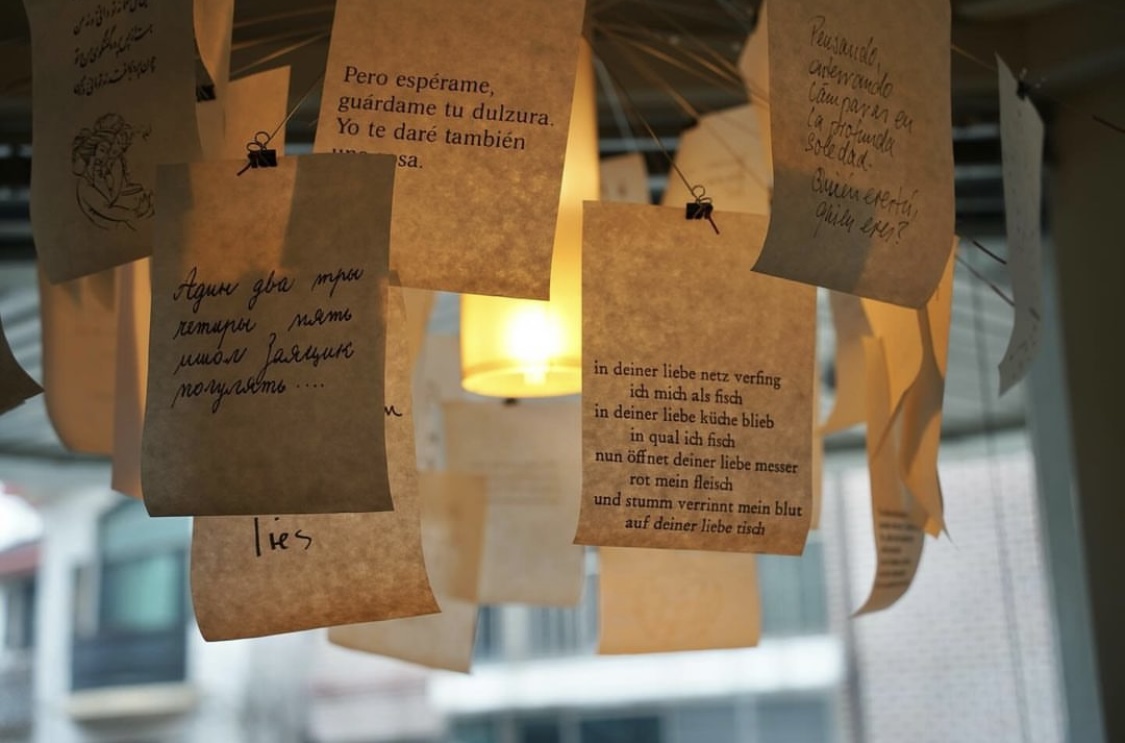 Pero espérame,
guárdame tu dulzura.
Yo te daré también
una osa.
Pensando,
enterrando
lámparas en
la profunda
soledad.
Quién eres tú,
quién eres?
Адин два тры
четиры пять
ишол Заящик
погулять ....
lies
in deiner liebe netz verfing
ich mich als fisch
in deiner liebe küche blieb
in qual ich fisch
nun öffnet deiner liebe messer
rot mein fleisch
und stumm verrinnt mein blut
auf deiner liebe tisch